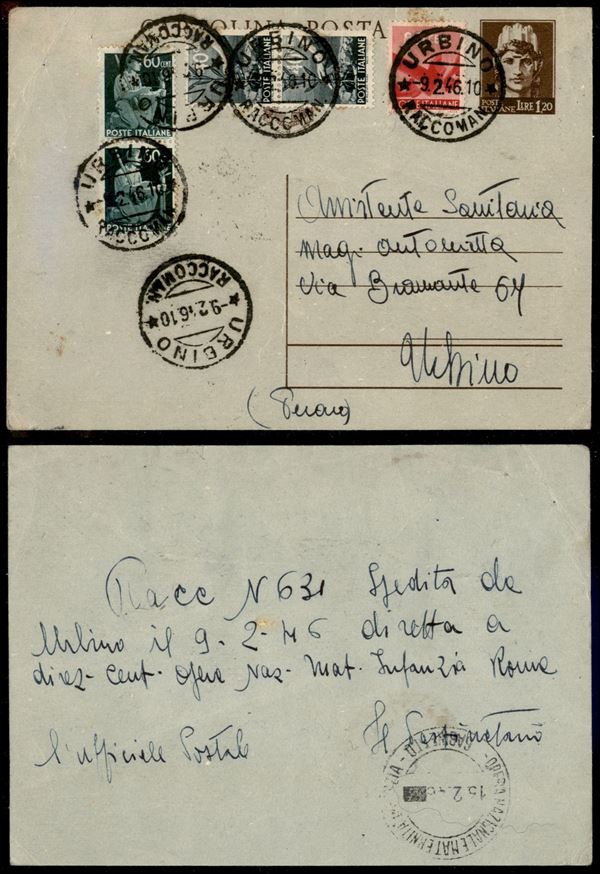 CARTOLINA POSTA
60 CENT.
POSTE ITALIANE
URBINO
RACCOMAN.
-9.2.46.10
URBINO
RACCOMAN.
-9.2.46.10
URBINO
RACCOMAN.
POSTE ITALIANE
POSTE ITALIANE
LIRE 1,20
60
URBINO
RACCOMAN.
URBINO
-9.2.46.10
RACCOMAN.
Assistente Sanitaria
Mag. Antonietta
Via Bramante 64
Urbino
(Pesaro)
Racc N 631 Spedita da
Urbino il 9-2-46 diretta a
direz- Cent- Opera Naz- Mat- Infanzia Roma
l'ufficiale Postale
Il
OPERA NAZIONALE MATERNITÀ
15.2.46